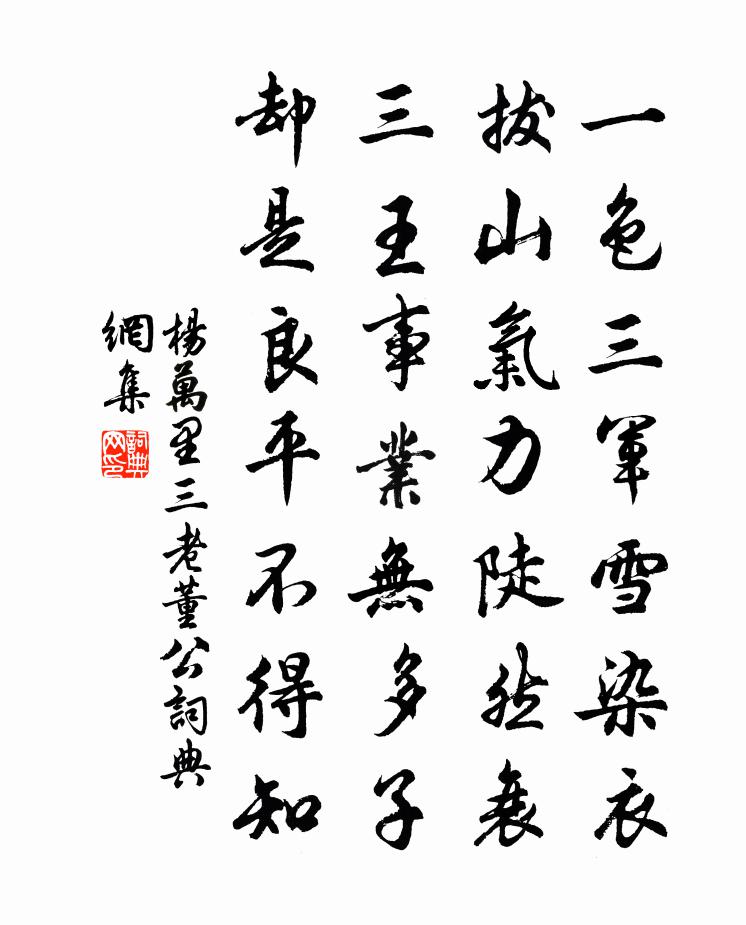 一色三軍雪染衣
拔山氣力陡然衰
三王事業無多子
却是良平不得知
楊萬里三老董公詞典
網集
詞典網印